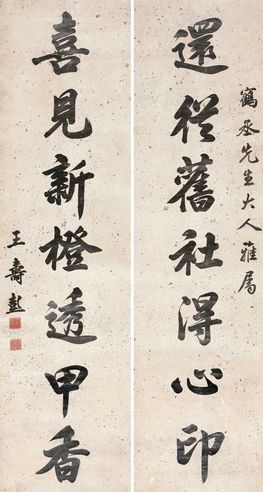 鶴丞先生大人雅屬
還從舊社得心印
喜見新橙透甲香
王壽彭